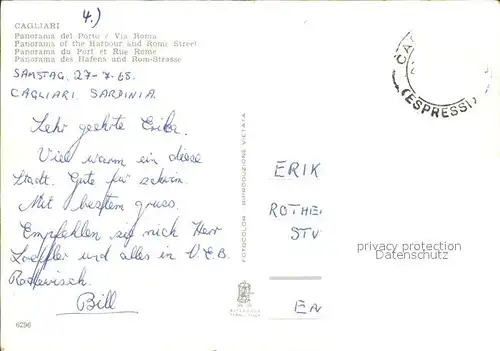 4.)
CAGLIARI
Panorama del Porto e Via Roma
Panorama of the Harbour and Rome Street
Panorama du Port et Rue Rome
Panorama des Hafens und Rom-Strasse
SAMSTAG. 27-7-68.
CAGLIARI. SARDINIA.
Sehr geehrte Erika.
Viel warm ein diese
Stadt. Gute für schwim.
Mit bestem gruss.
Empfehlen sie mich Herr
Loeffler und alles in V.E.B.
Bill
6296
FOTOCOLOR RIPRODUZIONE VIETATA
(ESPRESSI
ERIK
ROTHE
STV
EA
privacy protection
Datenschutz